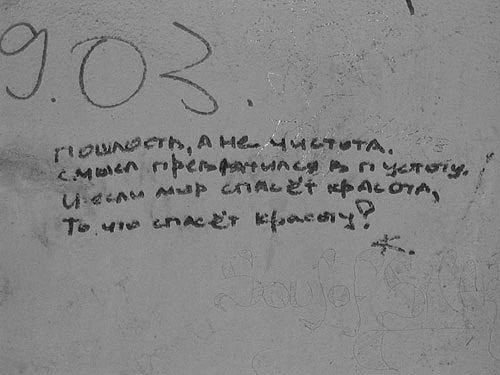 9.03.
Пошлость, а не чистота.
Смысл превратился в пустоту.
И если мир спасёт красота,
То что спасёт красоту?
К.